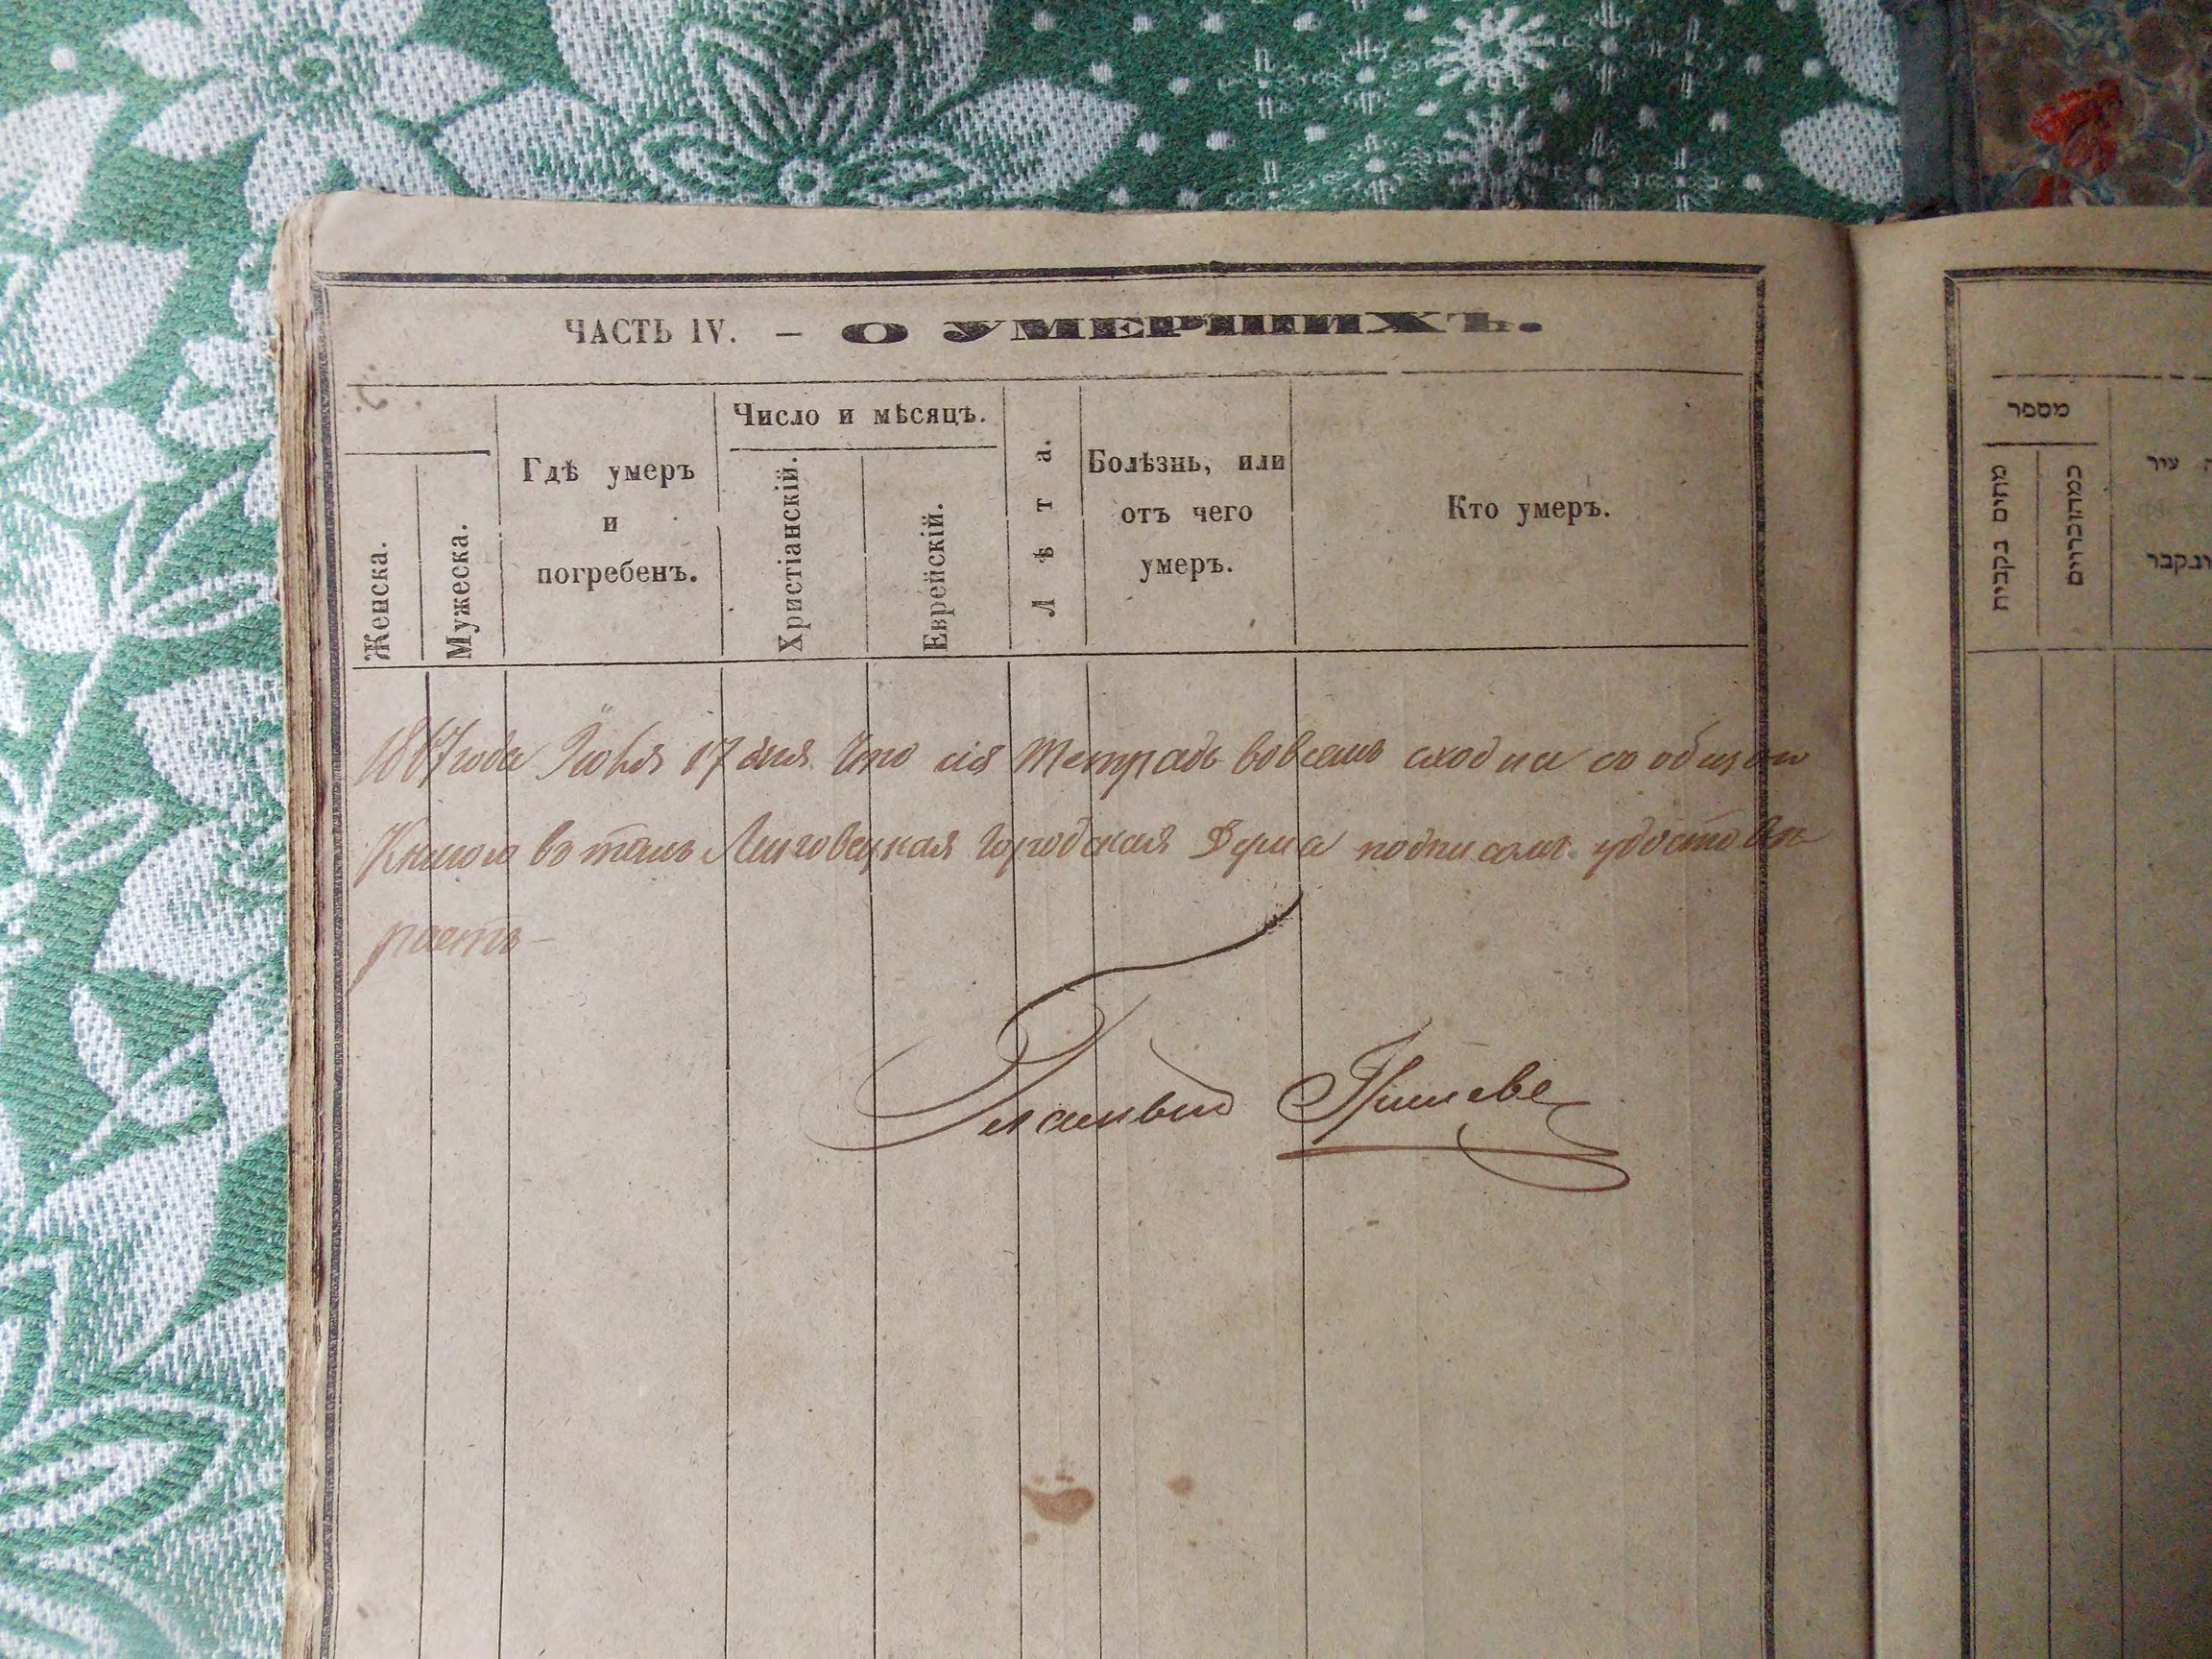 ЧАСТЬ IV. — О УМЕРШИХЪ.
Женска.
Мужеска.
Гдѣ умеръ
и
погребенъ.
Число и мѣсяцъ.
Христіанскій.
Еврейскій.
Лѣта.
Болѣзнь, или
отъ чего
умеръ.
Кто умеръ.
1867 года Іюля 17 дня Что сія тетрадь во всемъ сходна со общею
Книгою въ томъ Липовецкая Городская Дума подписомъ удостовѣ
ряетъ —
Гласный
מספר